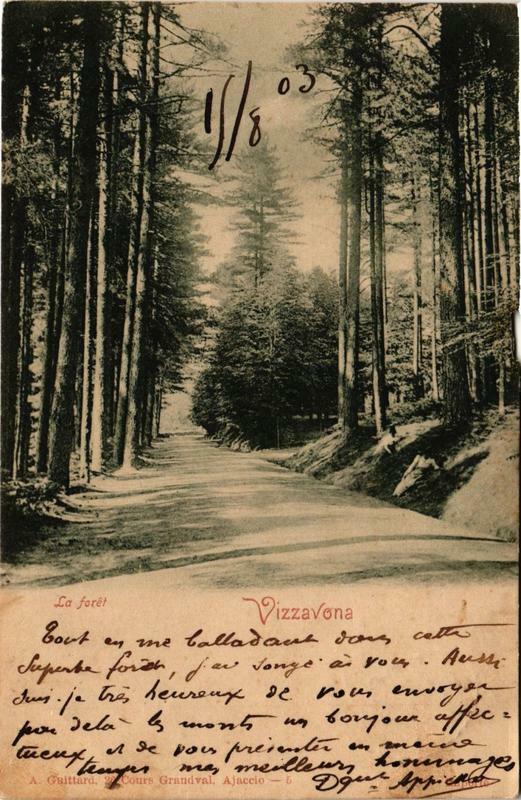 15/8 03
La forêt
Vizzavona
Tout en me balladant dans cette
superbe forêt, j'ai songé à vous. Aussi
suis-je très heureux de vous envoyer
par delà les monts un bonjour affec-
tueux et de vous présenter en même
temps mes meilleurs hommages
A. Guittard, Cours Grandval, Ajaccio — 5